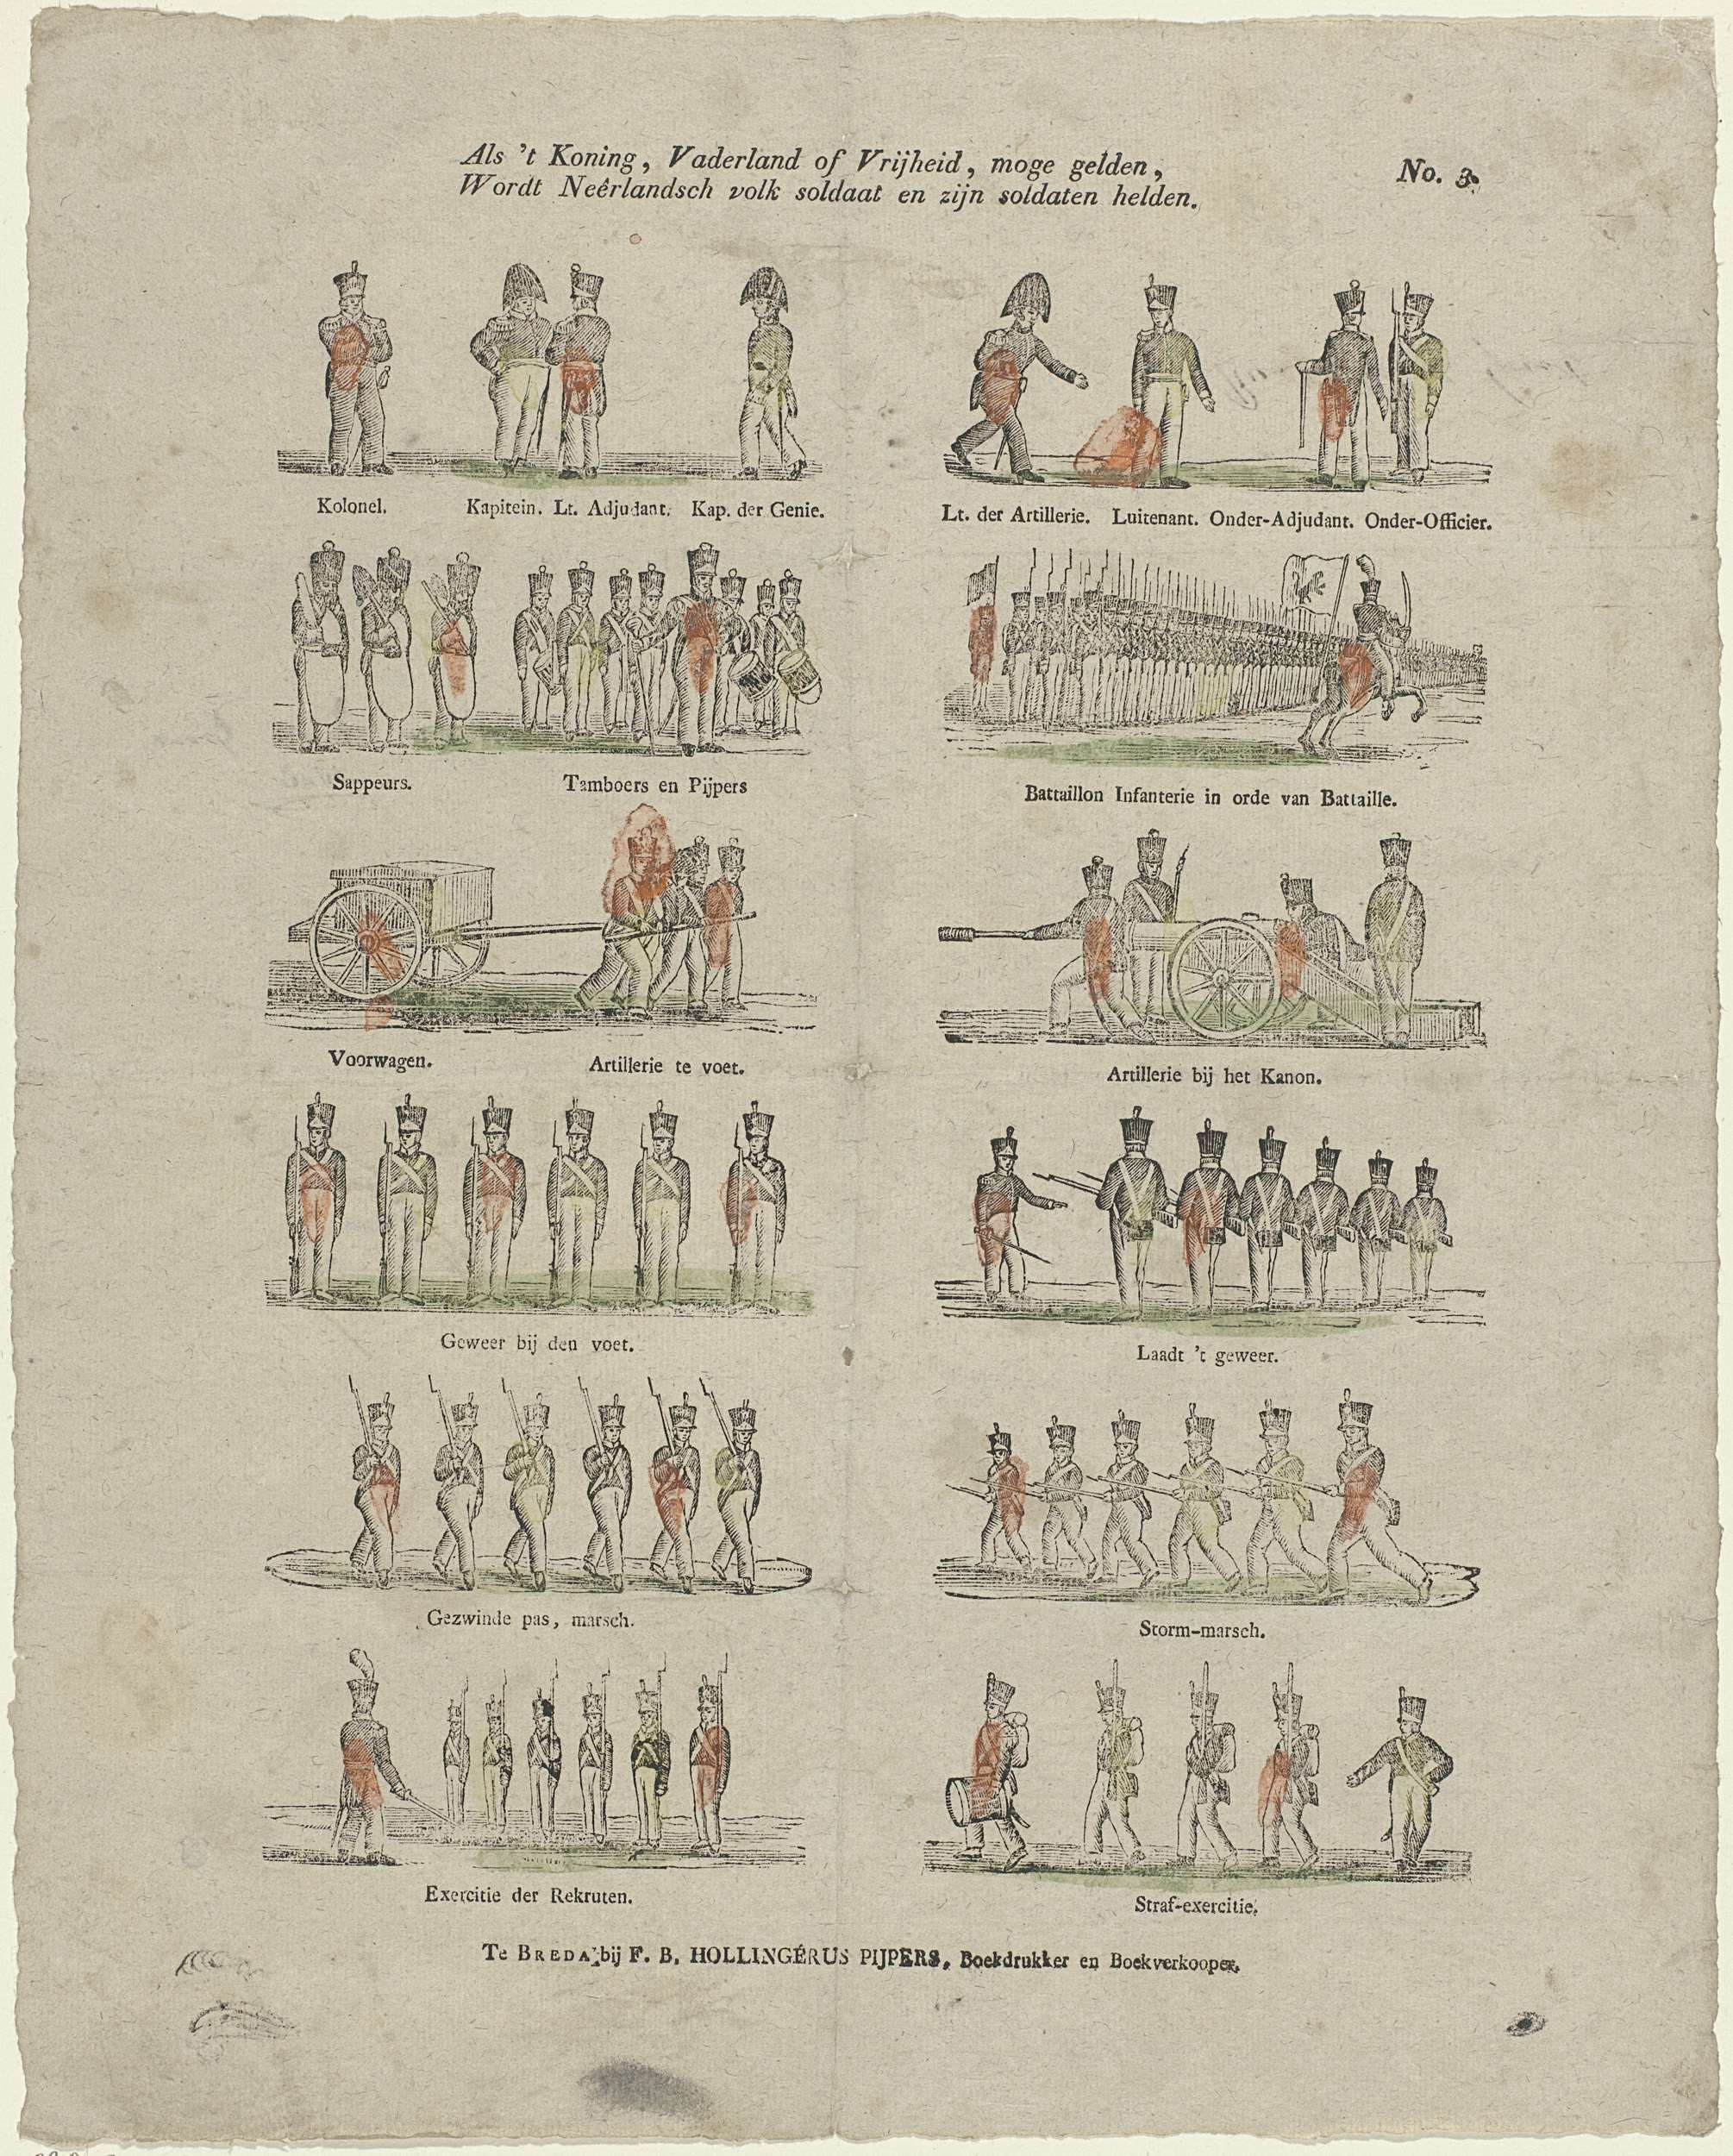 Als 't Koning, Vaderland of Vrijheid, moge gelden,
Wordt Neêrlandsch volk soldaat en zijn soldaten helden.
No. 3.
Kolonel. Kapitein. Lt. Adjudant. Kap. der Genie.
Lt. der Artillerie. Luitenant. Onder-Adjudant. Onder-Officier.
Sappeurs. Tamboers en Pijpers
Battaillon Infanterie in orde van Battaille.
Voorwagen. Artillerie te voet.
Artillerie bij het Kanon.
Geweer bij den voet.
Laadt 't geweer.
Gezwinde pas, marsch.
Storm-marsch.
Exercitie der Rekruten.
Straf-exercitie.
Te BREDA, bij F. B. HOLLINGÉRUS PIJPERS, Boekdrukker en Boekverkooper.